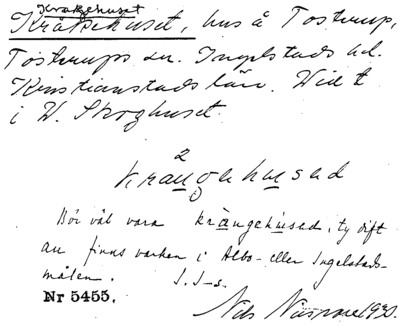 Kråkehuset
Kråkehuset, hus å Tostrup,
Tostrups sn. Ingelstads hd.
Kristianstads län. Vid t
i V. Skoghuset.
2
kraugehused
Bör väl vara krångehused, ty dift
au finns varken i Albo- eller Ingelstads-
målen. I. I-s.
Nr 5455.
Nils 1930.